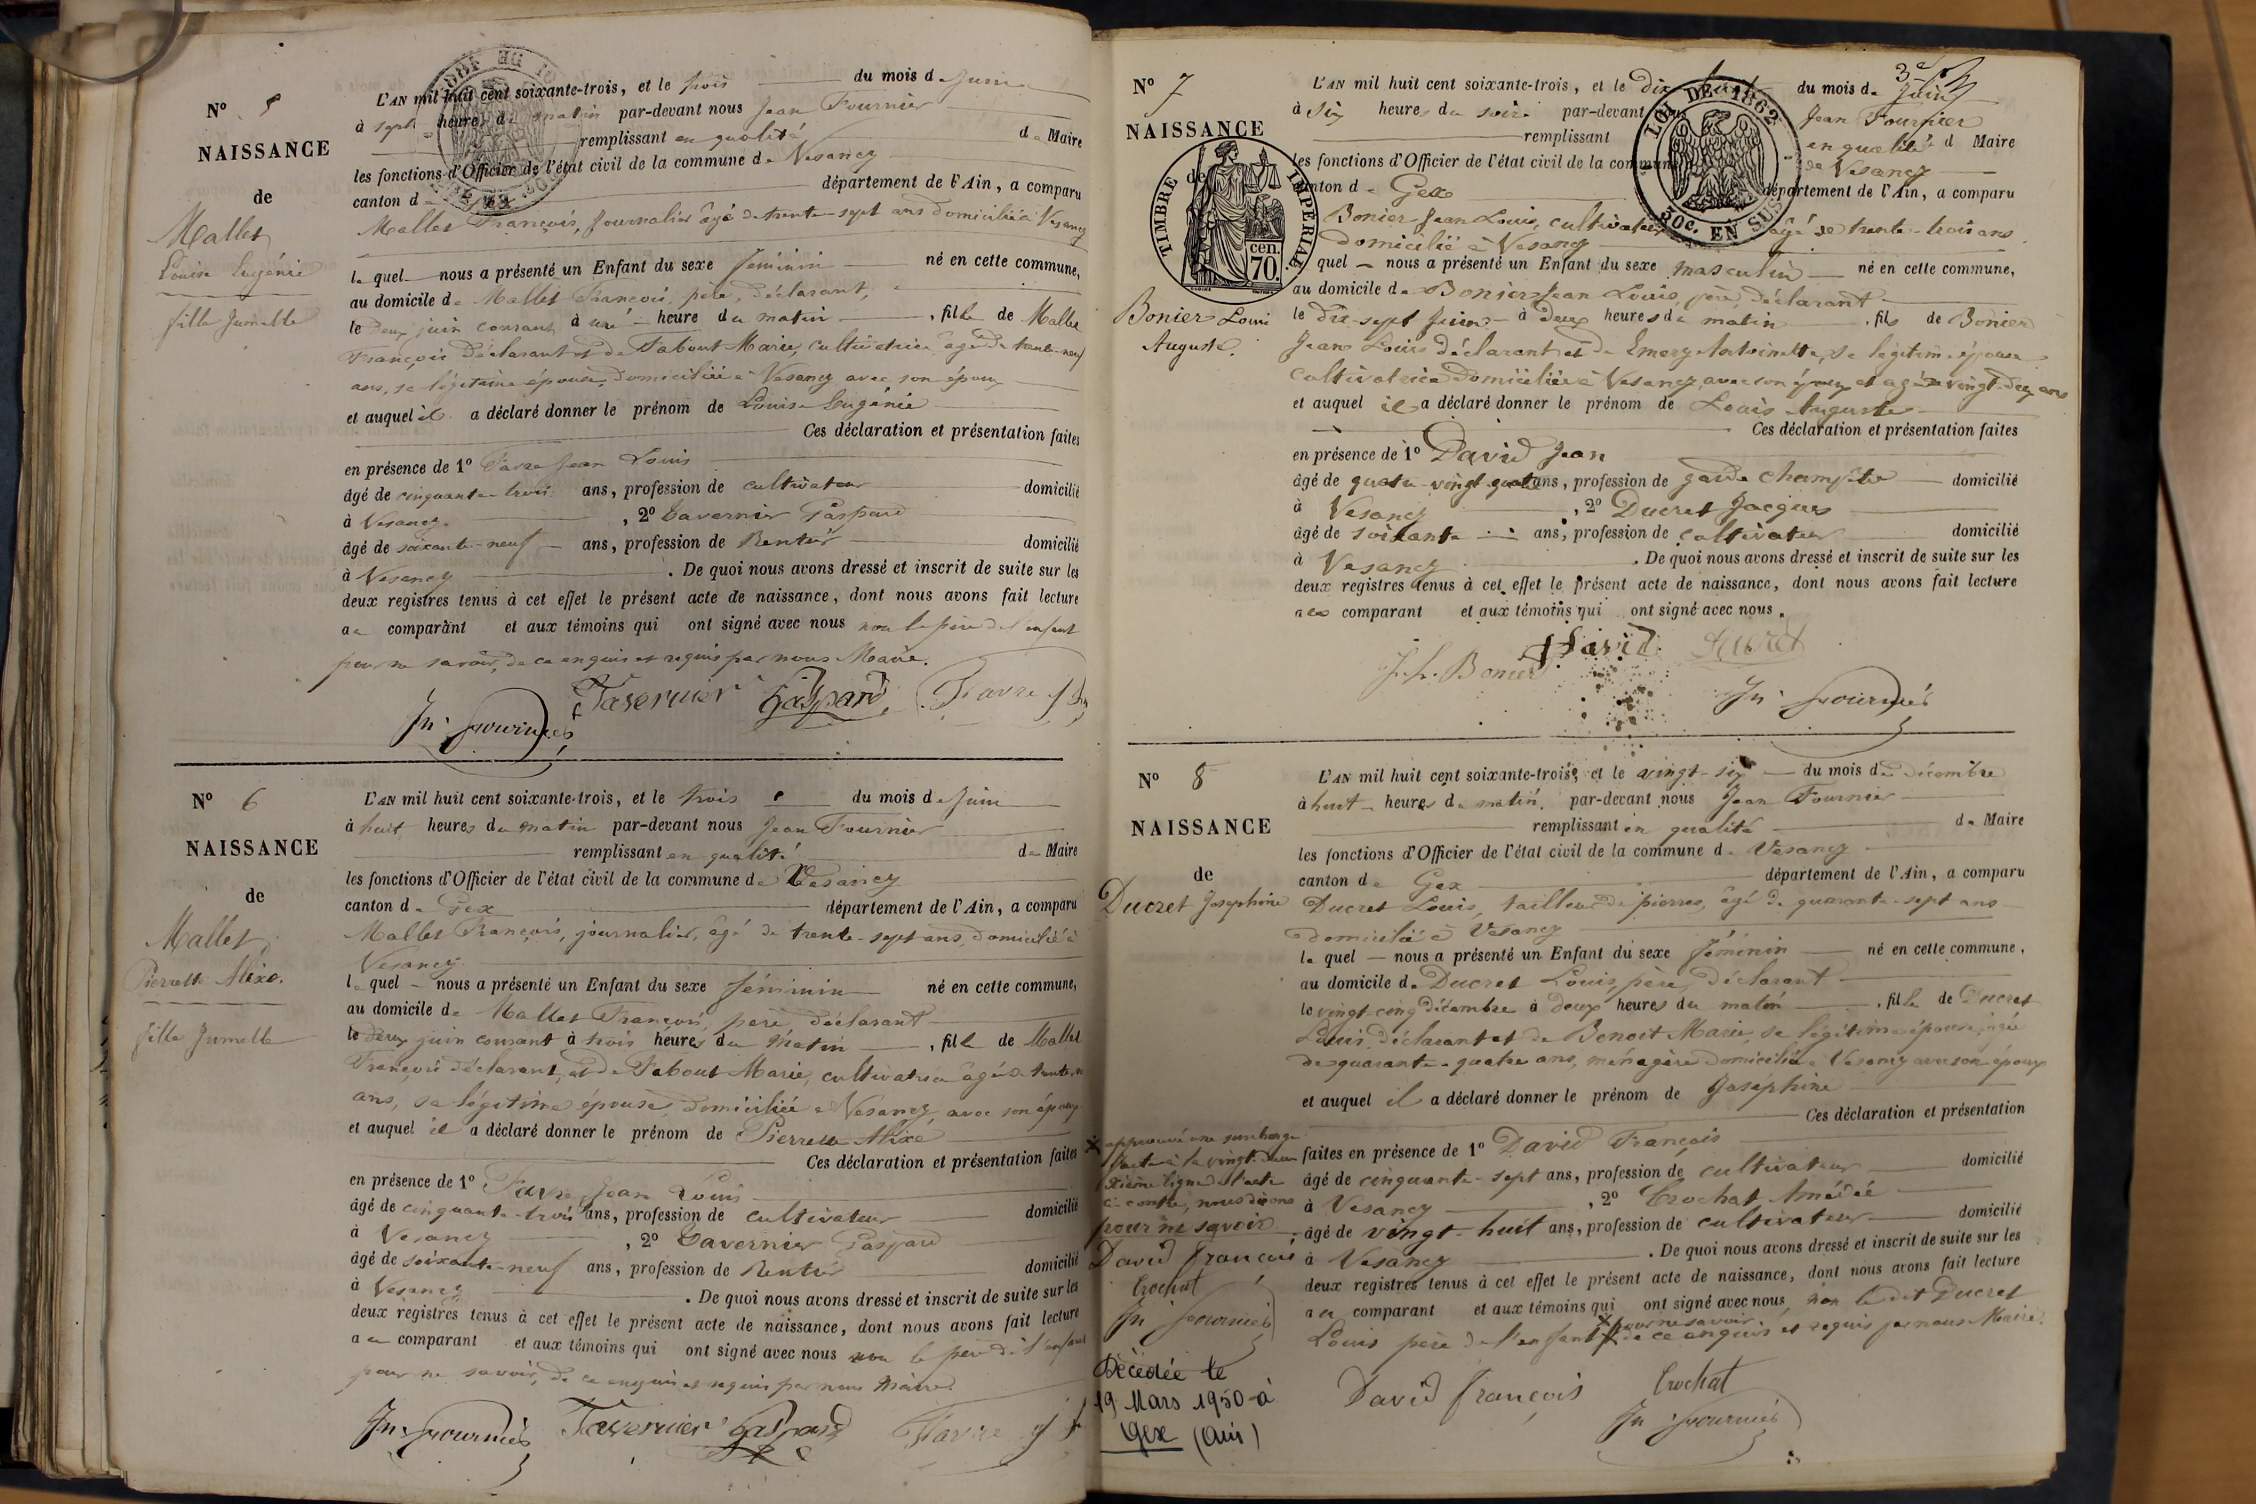 N° 5
NAISSANCE
de
Mallet
Louise Eugénie
fille Jumelle
L'AN mil huit cent soixante-trois, et le trois du mois de Juin
à sept heures du matin par-devant nous Jean Fournier
remplissant en qualité de Maire
les fonctions d'Officier de l'état civil de la commune de Vesancy
canton d département de l'Ain, a comparu
Mallet François, Journalier âgé de trente-sept ans domicilié à Vesancy
lequel nous a présenté un Enfant du sexe féminin né en cette commune,
au domicile de Mallet François, père, déclarant,
le deux juin courant à une heure du matin, fille de Mallet
François déclarant et de Tabout Marie, cultivatrice âgée de trente-neuf
ans, sa légitime épouse, domiciliée à Vesancy avec son époux
et auquel il a déclaré donner le prénom de Louise Eugénie
Ces déclaration et présentation faites
en présence de 1° Favre Jean Louis
âgé de cinquante-trois ans, profession de cultivateur domicilié
à Vesancy, 2° Tavernier Gaspard
âgé de soixante-neuf ans, profession de Rentier domicilié
à Vesancy. De quoi nous avons dressé et inscrit de suite sur les
deux registres tenus à cet effet le présent acte de naissance, dont nous avons fait lecture
au comparant et aux témoins qui ont signé avec nous non le père de l'enfant
pour ne savoir, de ce enquis et requis par nous Maire.
Jn Fournier Tavernier Gaspard Favre J
N° 6
NAISSANCE
de
Mallet
Pierrette Alixe.
fille Jumelle
L'AN mil huit cent soixante-trois, et le trois du mois de Juin
à huit heures du matin par-devant nous Jean Fournier
remplissant en qualité de Maire
les fonctions d'Officier de l'état civil de la commune de Vesancy
canton de Gex département de l'Ain, a comparu
Mallet François, journalier, âgé de trente-sept ans, domicilié à
Vesancy
lequel nous a présenté un Enfant du sexe féminin né en cette commune,
au domicile de Mallet François père, déclarant
le deux juin courant à trois heures du matin, fille de Mallet
François déclarant, et de Tabout Marie, cultivatrice âgée de trente-n
ans, sa légitime épouse domiciliée à Vesancy avec son époux
et auquel il a déclaré donner le prénom de Pierrette Alixe
Ces déclaration et présentation faites
en présence de 1° Favre Jean Louis
âgé de cinquante-trois ans, profession de cultivateur domicilié
à Vesancy, 2° Tavernier Gaspard
âgé de soixante-neuf ans, profession de Rentier domicilié
à Vesancy. De quoi nous avons dressé et inscrit de suite sur les
deux registres tenus à cet effet le présent acte de naissance, dont nous avons fait lecture
au comparant et aux témoins qui ont signé avec nous non le père de l'enfant
pour ne savoir, de ce enquis et requis par nous Maire.
Jn Fournier Tavernier Gaspard Favre J
N° 7
NAISSANCE
de
TIMBRE IMPERIAL
cen. 70.
LOI DE 1862
30c. EN SUS
Bonier Louis
Auguste.
L'AN mil huit cent soixante-trois, et le dix du mois de Juin
à six heures du soir par-devant Jean Fournier
remplissant en qualité d Maire
les fonctions d'Officier de l'état civil de la commune de Vesancy
canton de Gex département de l'Ain, a comparu
Bonier Jean Louis, cultivateur âgé de trente-trois ans
domicilié à Vesancy
quel nous a présenté un Enfant du sexe masculin né en cette commune,
au domicile de Bonier Jean Louis, père, déclarant
le dix-sept Juin à deux heures du matin, fils de Bonier
Jean Louis déclarant et de Emery Antoinette, sa légitime épouse
cultivatrice domiciliée à Vesancy, avec son époux et agée vingt-deux ans
et auquel il a déclaré donner le prénom de Louis Auguste
Ces déclaration et présentation faites
en présence de 1° David Jean
âgé de quatre-vingt-quatre ans, profession de garde champêtre domicilié
à Vesancy, 2° Ducret Jacques
âgé de soixante ans, profession de cultivateur domicilié
à Vesancy. De quoi nous avons dressé et inscrit de suite sur les
deux registres tenus à cet effet le présent acte de naissance, dont nous avons fait lecture
aux comparant et aux témoins qui ont signé avec nous.
J. L. Bonier David Ducret
Jn Fournier
N° 8
NAISSANCE
de
Ducret Josephine
L'AN mil huit cent soixante-trois, et le vingt-six du mois de décembre
à huit heures du matin, par-devant nous Jean Fournier
remplissant en qualité de Maire
les fonctions d'Officier de l'état civil de la commune de Vesancy
canton de Gex département de l'Ain, a comparu
Ducret Louis, tailleur de pierres, âgé de quarante-sept ans
domicilié à Vesancy
lequel nous a présenté un Enfant du sexe féminin né en cette commune,
au domicile de Ducret Louis père, déclarant
le vingt-cinq décembre à deux heures du matin, fille de Ducret
Louis, déclarant et de Benoit Marie, sa légitime épouse, âgée
de quarante-quatre ans, ménagère domiciliée à Vesancy avec son époux
et auquel il a déclaré donner le prénom de Joséphine
Ces déclaration et présentation
faites en présence de 1° David François
âgé de cinquante-sept ans, profession de cultivateur domicilié
à Vesancy, 2° Crochat Amédée
âgé de vingt-huit ans, profession de cultivateur domicilié
à Vesancy. De quoi nous avons dressé et inscrit de suite sur les
deux registres tenus à cet effet le présent acte de naissance, dont nous avons fait lecture
au comparant et aux témoins qui ont signé avec nous, non le dit Ducret
pour ne savoir
Louis père de l'enfant de ce enquis et requis par nous Maire.
David François Crochat
Jn Fournier
approuvé une surcharge
faite à la vingt-deu
xième ligne de l'acte
ci-contre, nous disons
pour ne savoir
David François
Crochat
Jn Fournier
Décédée le
19 Mars 1950 à
Gex (Ain)